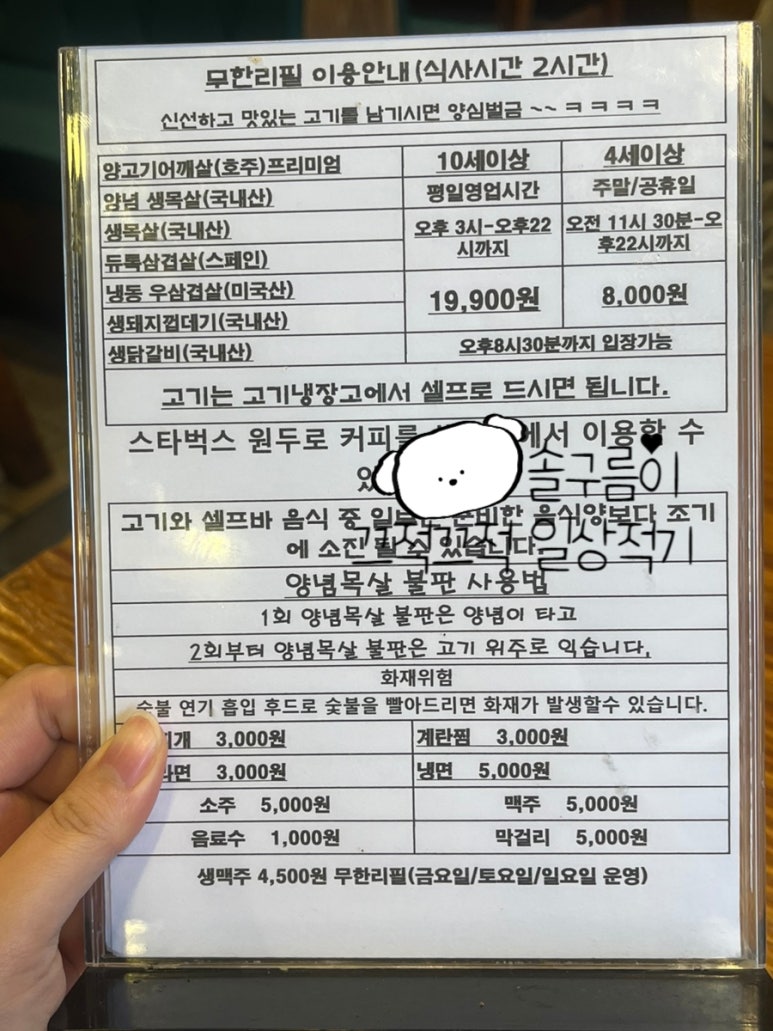 무한리필 이용안내(식사시간 2시간)
신선하고 맛있는 고기를 남기시면 양심벌금 ~~ ㅋㅋㅋㅋ
양고기어깨살(호주)프리미엄 10세이상 4세이상
양념 생목살(국내산) 평일영업시간 주말/공휴일
생목살(국내산) 오후 3시-오후22 오전 11시 30분-오
시까지 후22시까지
듀록삼겹살(스페인)
냉동 우삼겹살(미국산) 19,900원 8,000원
생돼지껍데기(국내산)
생닭갈비(국내산) 오후8시30분까지 입장가능
고기는 고기냉장고에서 셀프로 드시면 됩니다.
스타벅스 원두로 커피를 에서 이용할 수
솔구름이
고기와 셀프바 음식 중 음식양보다 조기
에 소진 될 수 있습니다.
끄적끄적 일상적기
양념목살 불판 사용법
1회 양념목살 불판은 양념이 타고
2회부터 양념목살 불판은 고기 위주로 익습니다.
화재위험
숯불 연기 흡입 후드로 숯불을 빨아드리면 화재가 발생할수 있습니다.
3,000원 계란찜 3,000원
3,000원 냉면 5,000원
소주 5,000원 맥주 5,000원
음료수 1,000원 막걸리 5,000원
생맥주 4,500원 무한리필(금요일/토요일/일요일 운영)